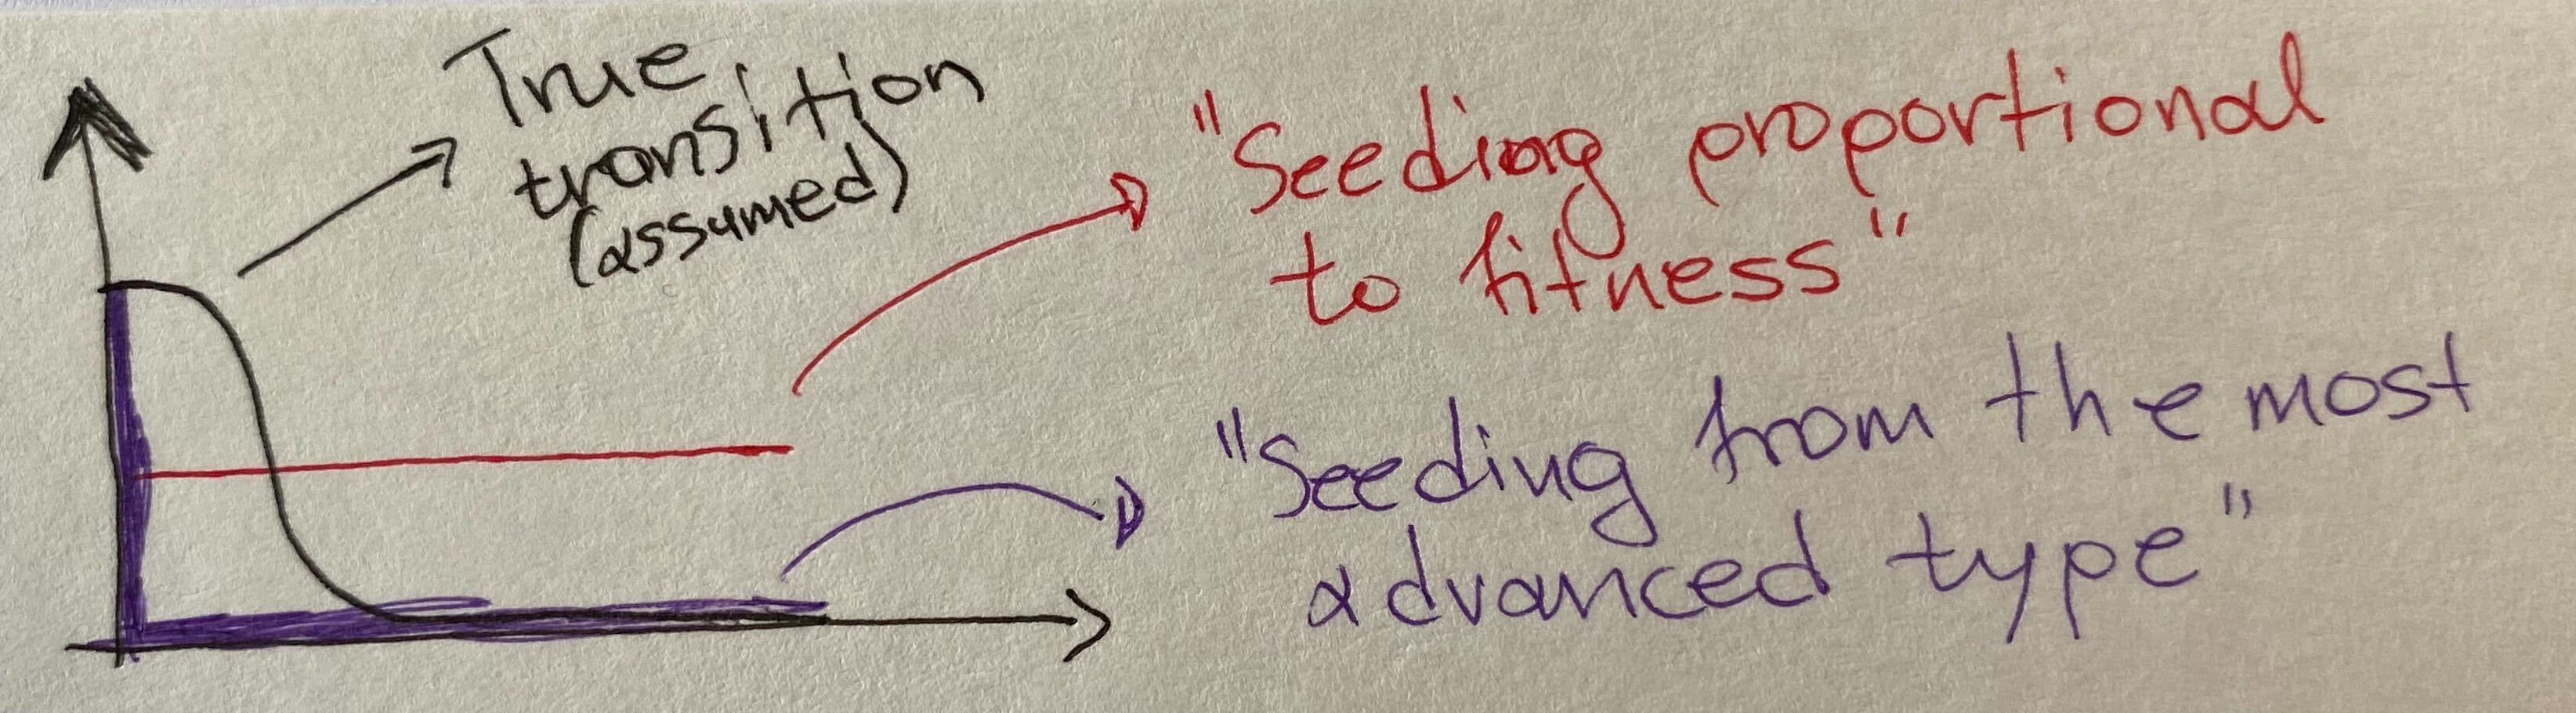 True
transition
(assumed)
"Seeding proportional
to fitness"
"Seeding from the most
advanced type"